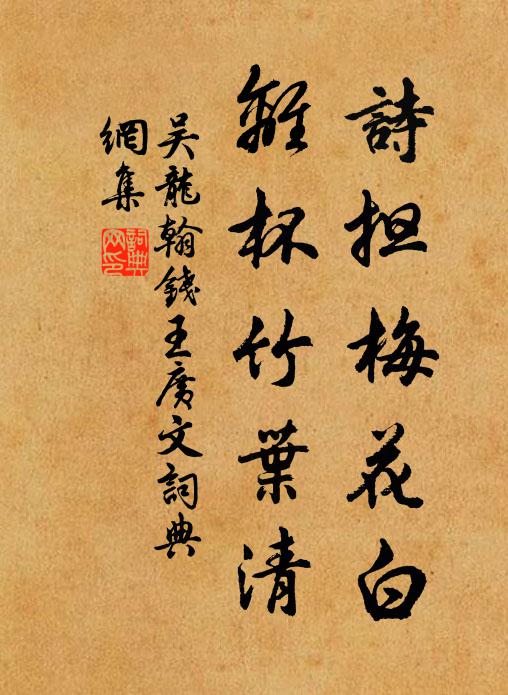 詩担梅花白
離杯竹葉清
吴龍翰錢王廣文詞典
網集
詞典
网印